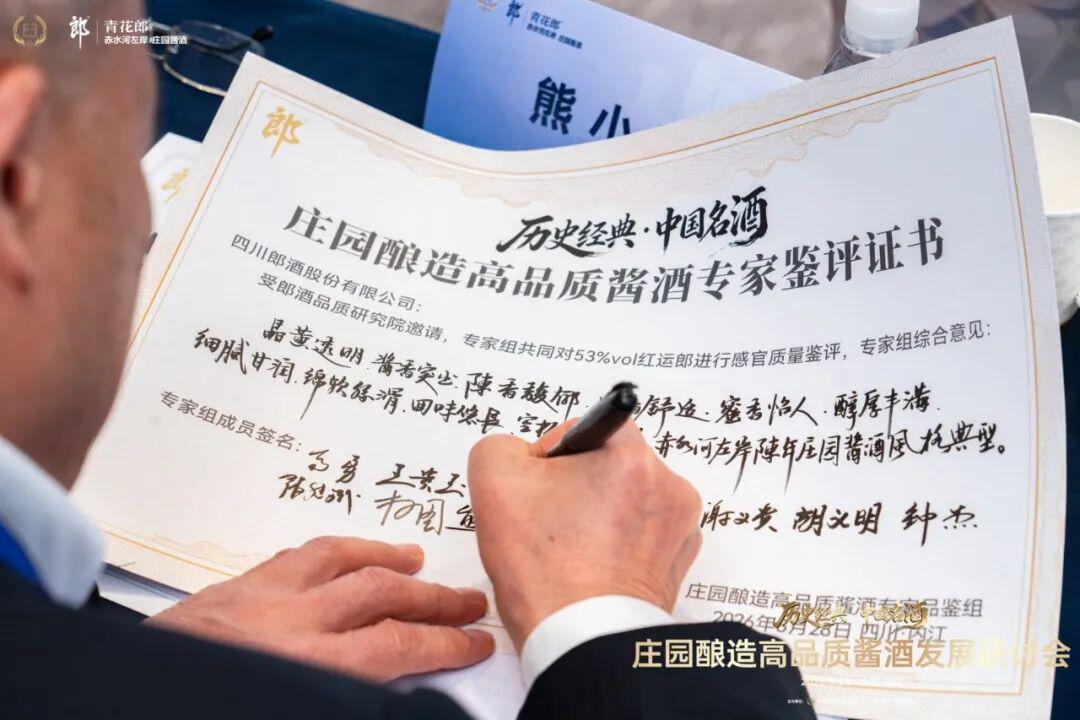 郎 青花郎
赤水河左岸 庄园酱酒
郎 青花郎
赤水河左岸 庄园酱酒
熊小
郎
历史经典·中国名酒
庄园酿造高品质酱酒专家鉴评证书
四川郎酒股份有限公司：
受郎酒品质研究院邀请，专家组共同对53%vol红运郎进行感官质量鉴评，专家组综合意见：
晶黄透明、酱香突出、陈香馥郁、舒适、蜜香怡人、醇厚丰满、
细腻甘润、绵软丝滑、回味悠长、空杯 赤水河左岸陈年庄园酱酒风格典型。
专家组成员签名：
高勇 王贵玉 谢义贵 胡义明 钟杰
庄园酿造高品质酱酒专家品鉴组
28日 四川·内江
历史经典·中国名酒
庄园酿造高品质酱酒发展研讨会